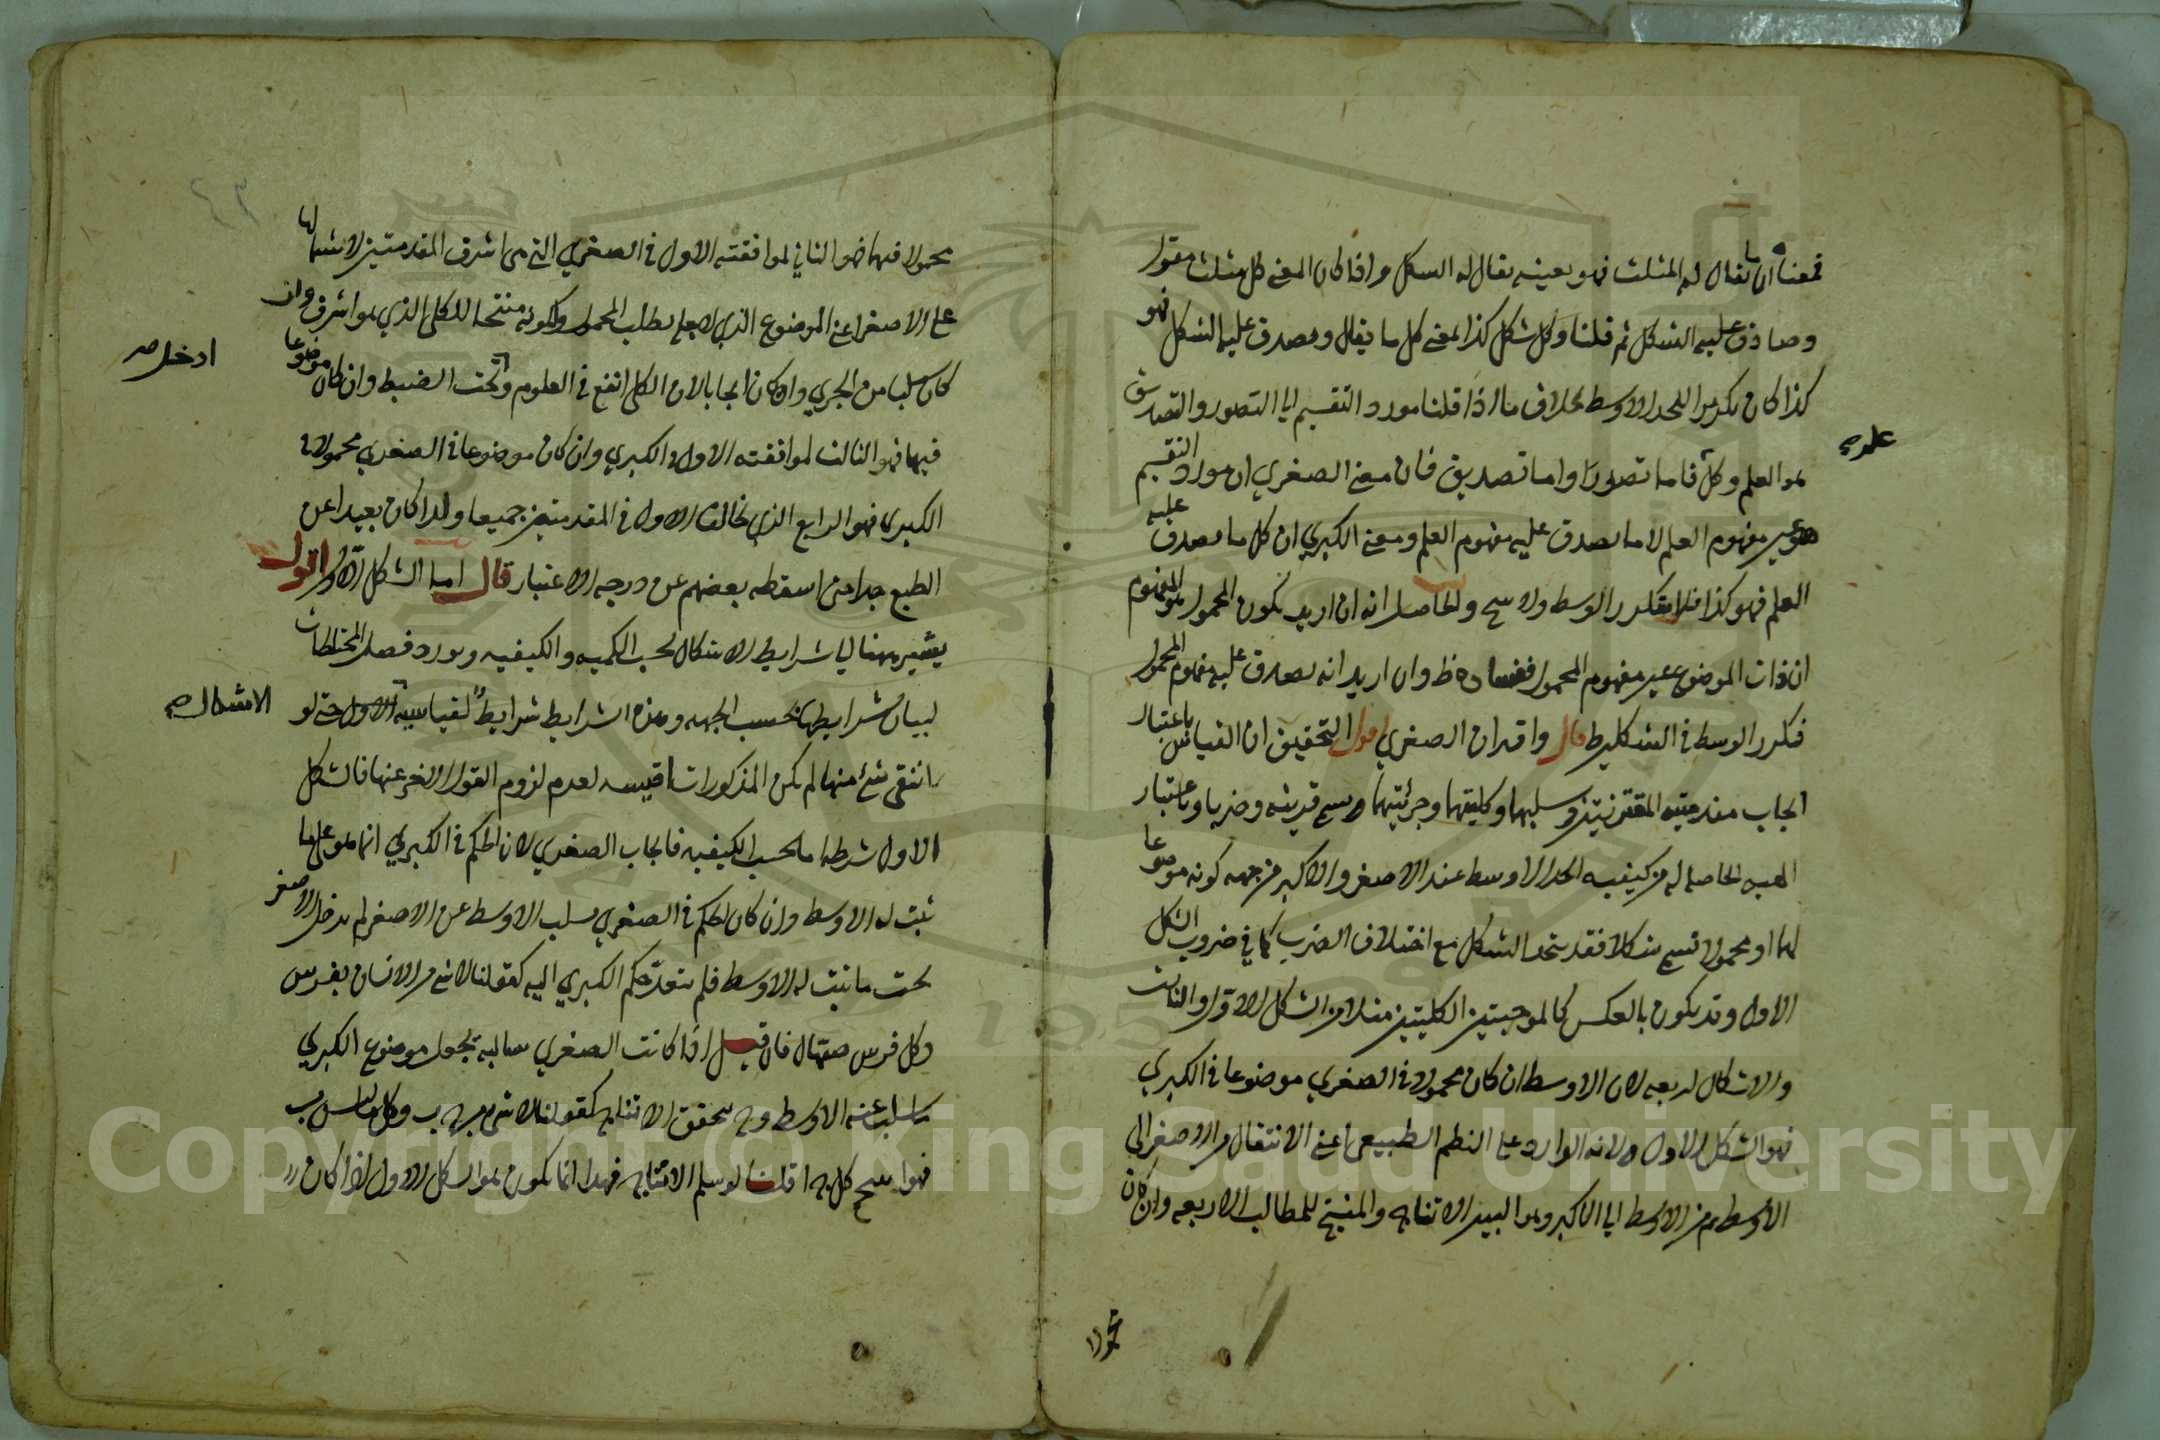 فمعناه ان ما يقال له المثلث فهو بعينه يقال له الشكل واذا كان المعنى كل مثلث مقول
وصادق عليه الشكل ثم قلنا وكل شكل كذا بمعنى كل ما يقال ويصدق عليه الشكل فهو
كذا كان تكريرا للحد الاوسط بخلاف ما اذا قلنا مورد التقسيم الى التصور والتصديق
هو العلم وكل علم فاما تصور واما تصديق فان معنى الصغرى ان مورد التقسيم
هو عين مفهوم العلم لا ما يصدق عليه مفهوم العلم ومعنى الكبرى ان كل ما يصدق عليه
العلم فهو كذا فلا يتكرر الوسط ولا ينتج والحاصل انه ان اريد بكون المحمول هو المفهوم
ان ذات الموضوع عين مفهوم المحمول ففساده ظ وان اريد انه يصدق عليه مفهوم المحمول
فتكرر الوسط في الشكل قال واقتران الصغرى اقول التحقيق ان القياس باعتبار
ايجاب مقدمتيه المقترنتين وسلبهما وكليتهما وجزئيتهما يسمى قرينة وضربا وباعتبار
الهيئة الحاصلة له من كيفية الحد الاوسط عند الاصغر والاكبر من جهة كونه موضوعا
لهما او محمولا تسمى شكلا فقد يتحد الشكل مع اختلاف الضرب كما في ضروب الشكل
الاول وقد يكون بالعكس كالموجبتين الكليتين مثلا من الشكل الاول والثالث
والاشكال اربعة لان الاوسط ان كان محمولا في الصغرى موضوعا في الكبرى
فهو الشكل الاول لانه الوارد على النظم الطبيعى اعنى الانتقال من الاصغر الى
الاوسط ثم من الاوسط الى الاكبر وهو البين الانتاج والمنتج للمطالب الاربعة وان كان
محمولا
محمولا فيهما فهو الثاني لموافقته الاول في الصغرى التي هى اشرف المقدمتين لاشتمالها
على الاصغر اعنى الموضوع الذي لاجله يطلب المحمول ولكونه منتجا للكلى الذي هو اشرف وان
كان سلبا من الجزى وان كان ايجابا لان الكلى انفع في العلوم وادخل تحت الضبط وان كان موضوعا
فيهما فهو الثالث لموافقته الاول في الكبرى وان كان موضوعا في الصغرى محمولا في
الكبرى فهو الرابع الذي يخالف الاول في المقدمتين جميعا ولذا كان بعيدا عن
الطبع جدا حتى اسقطه بعضهم عن درجة الاعتبار قال اما الشكل الاول اقول
يشير ههنا الى شرايط الاشكال بحسب الكمية والكيفية ويورد فصل المختلطات
لبيان شرايطها بحسب الجهة وهذه الشرايط شرايط لقياسية الاشكال حتى لو
انتفى شئ منها لم تكن المذكورات اقيسة لعدم لزوم القول الاخر عنها فالشكل
الاول شرطه اما بحسب الكيفية فايجاب الصغرى لان الحكم في الكبرى انما هو على ما
ثبت له الاوسط وان كان الحكم في الصغرى بسلب الاوسط عن الاصغر لم يدخل الاصغر
تحت ما ثبت له الاوسط فلم يتعد حكم الكبرى اليه كقولنا لا شئ من الانسان بفرس
وكل فرس صهال فان قيل اذا كانت الصغرى سالبة نجعل موضوع الكبرى
ما سلب عنه الاوسط وح يتحقق الانتاج كقولنا لا شئ من ج ب وكل ما ليس ب
فهو ا ينتج كل ج ا قلنا لو سلم الانتاج فهذا انما يكون هو الشكل الاول اذا كان